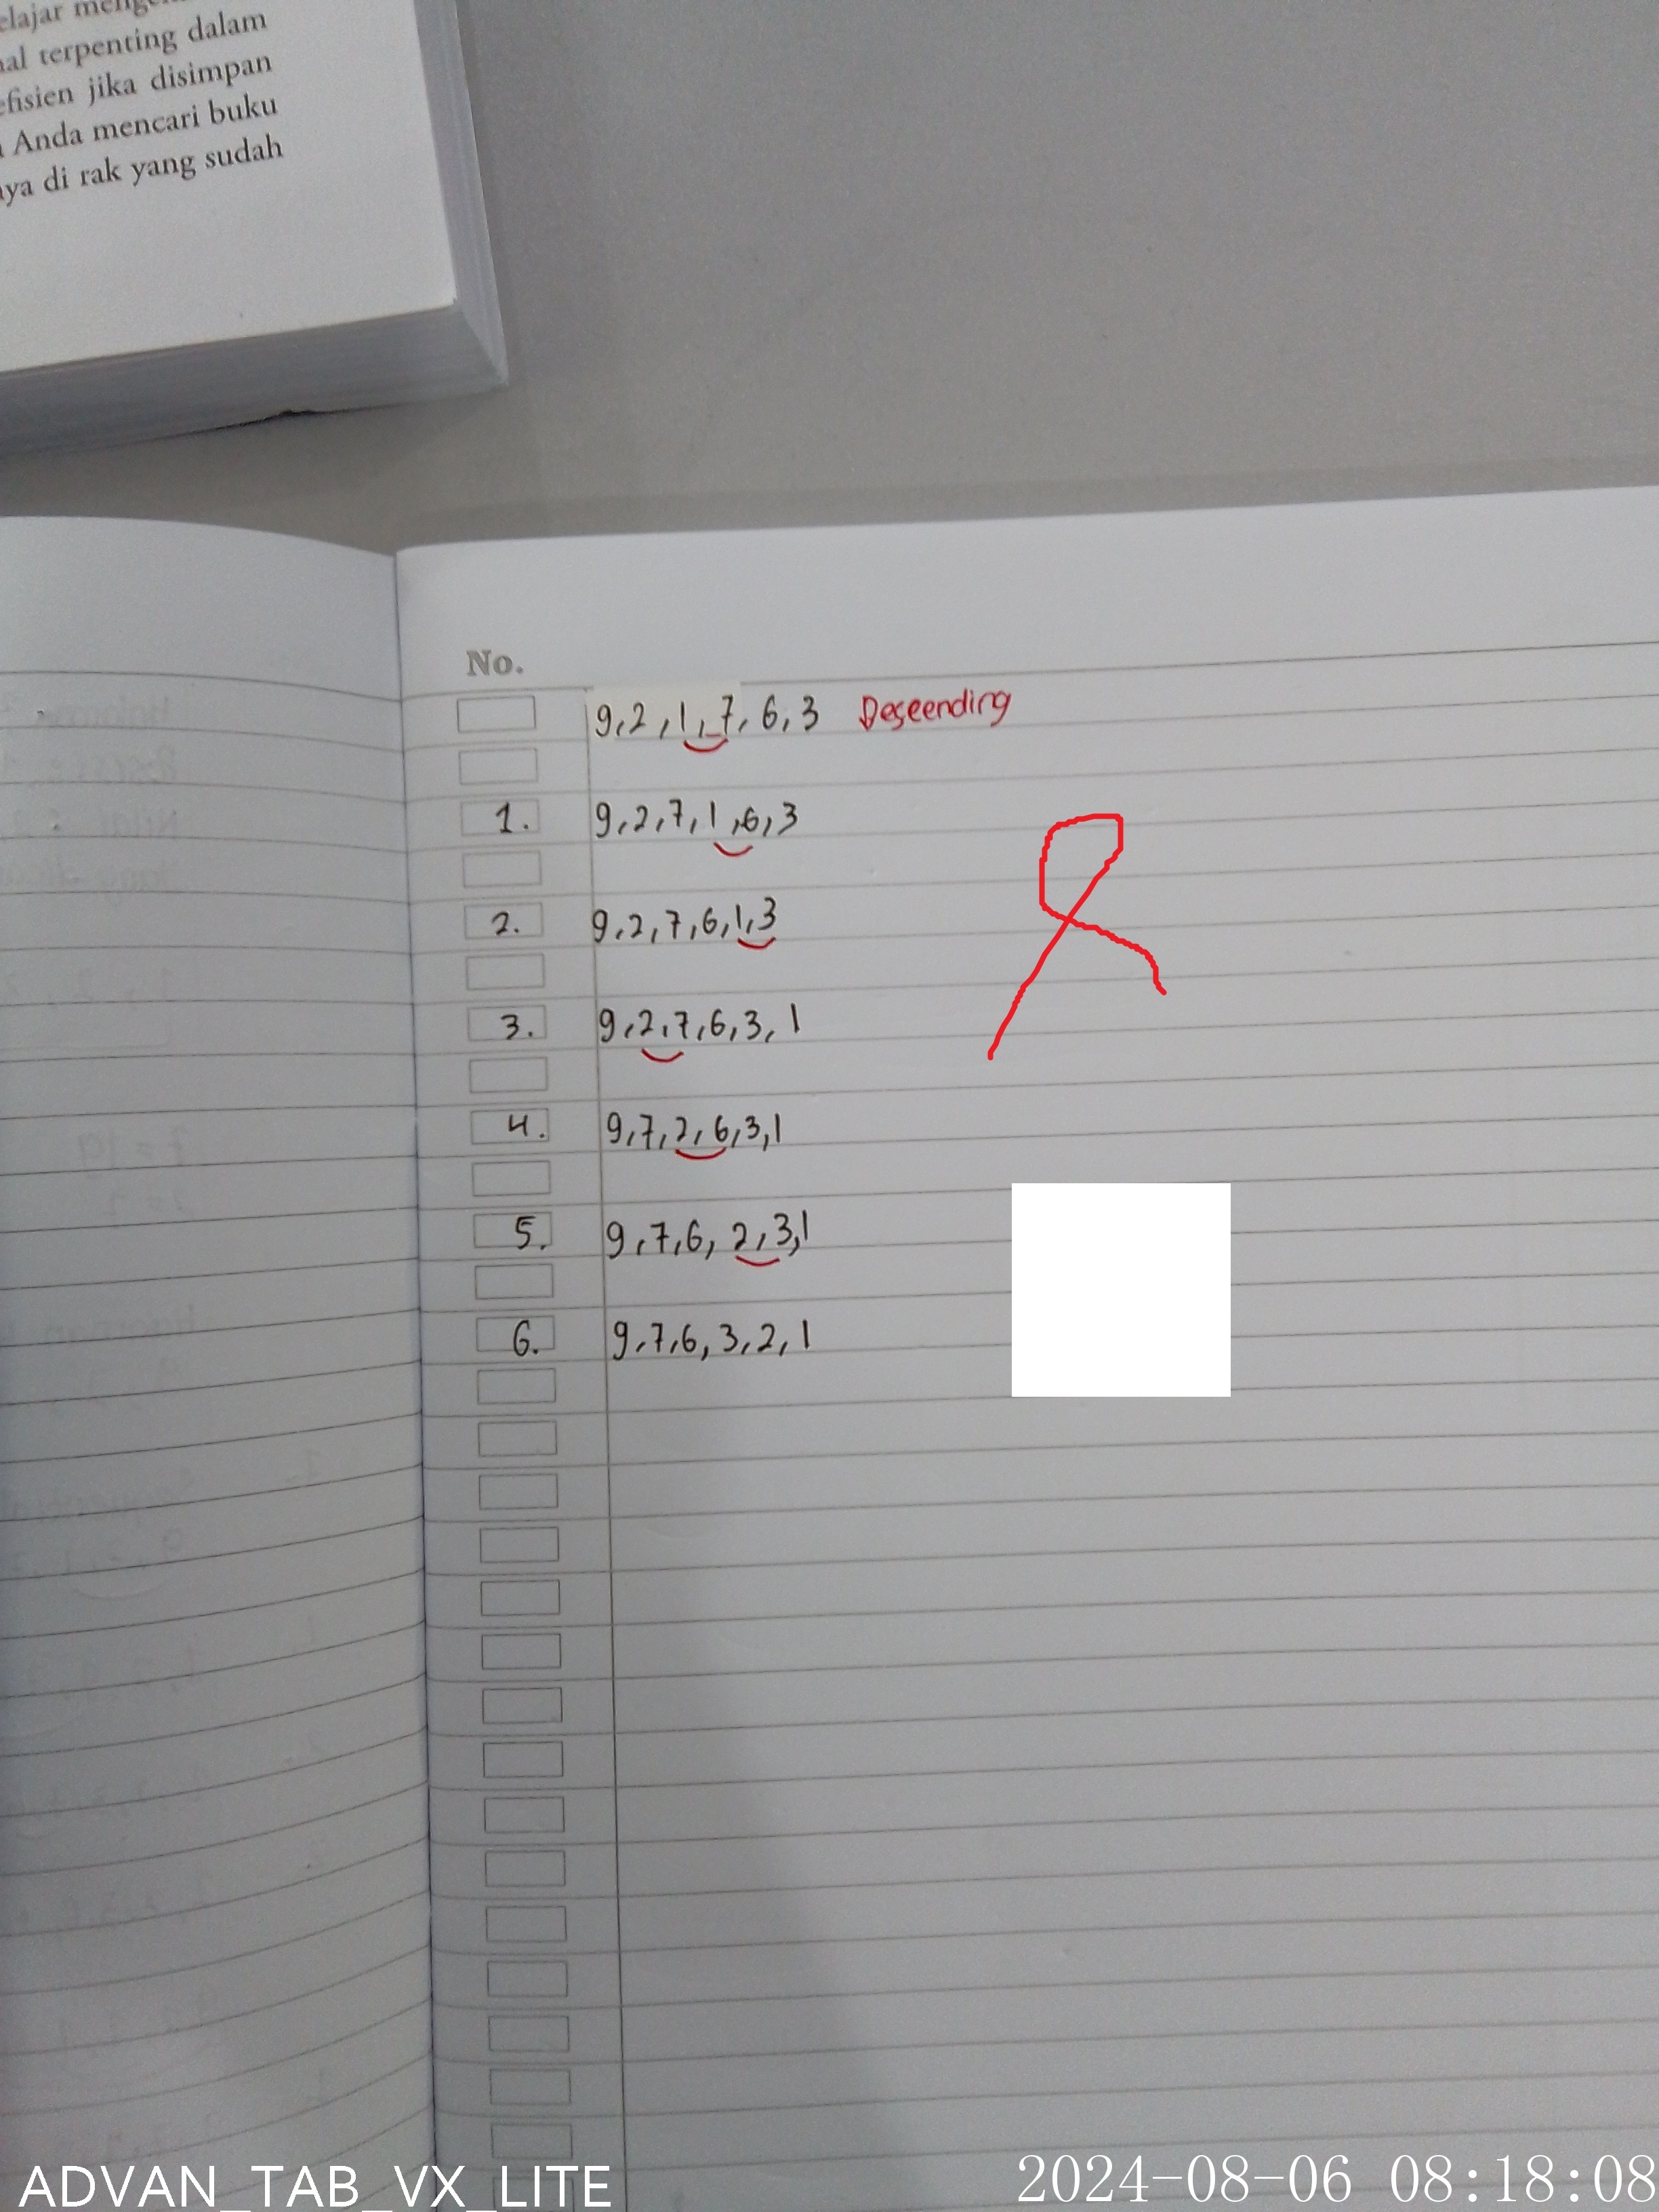 elajar
al terpenting dalam
efisien jika disimpan
Anda mencari buku
ya di rak yang sudah
No.
9,2,1,7,6,3 Descending
1. 9,2,7,1,6,3
2. 9,2,7,6,1,3
3. 9,2,7,6,3,1
4. 9,7,2,6,3,1
5. 9,7,6,2,3,1
6. 9,7,6,3,2,1
ADVAN_TAB_VX_LITE 2024-08-06 08:18:08